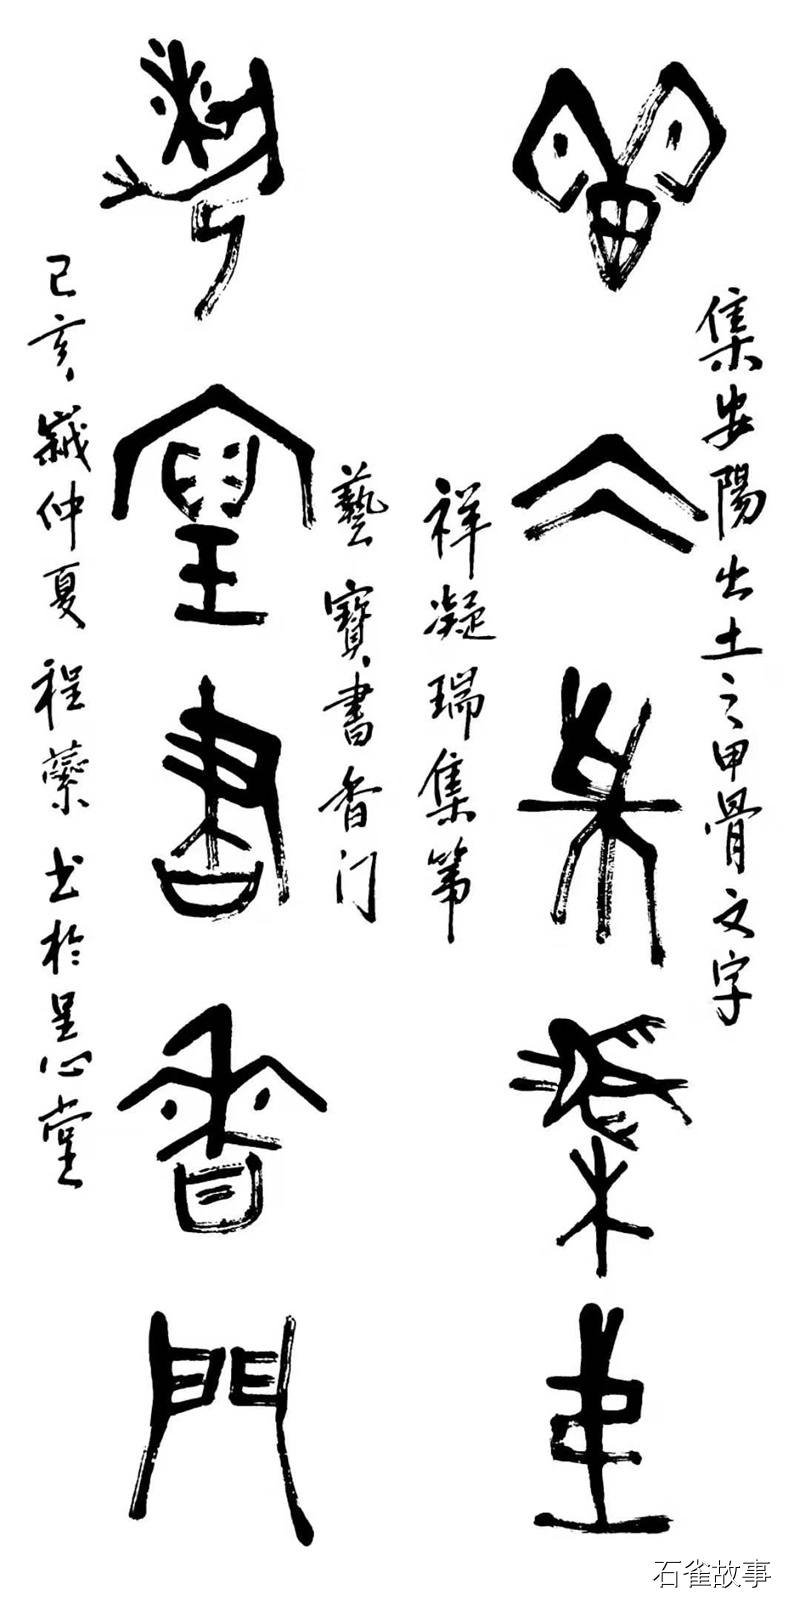 集安陽出土之甲骨文字
祥凝瑞集第
祥凝瑞集第
藝寶書香门
藝寶書香門
己亥歲仲夏程书於呈心堂
石雀故事